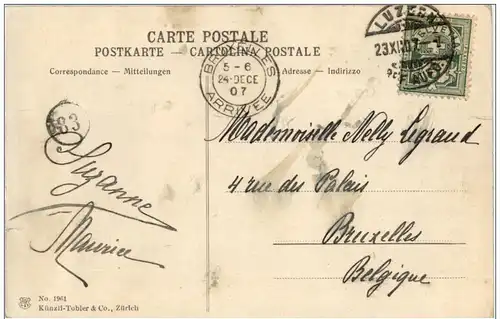 CARTE POSTALE
POSTKARTE — CARTOLINA POSTALE
Correspondance — Mitteilungen
Adresse — Indirizzo
BRUXELLES
5-6
24 DECE
07
ARRIVEE
LUZERN
23.XII.07.
683
Mademoiselle Nelly Legrand
4 rue des Palais
Bruxelles
Belgique
Suzanne
Maurice
No. 1961
Künzli-Tobler & Co., Zürich